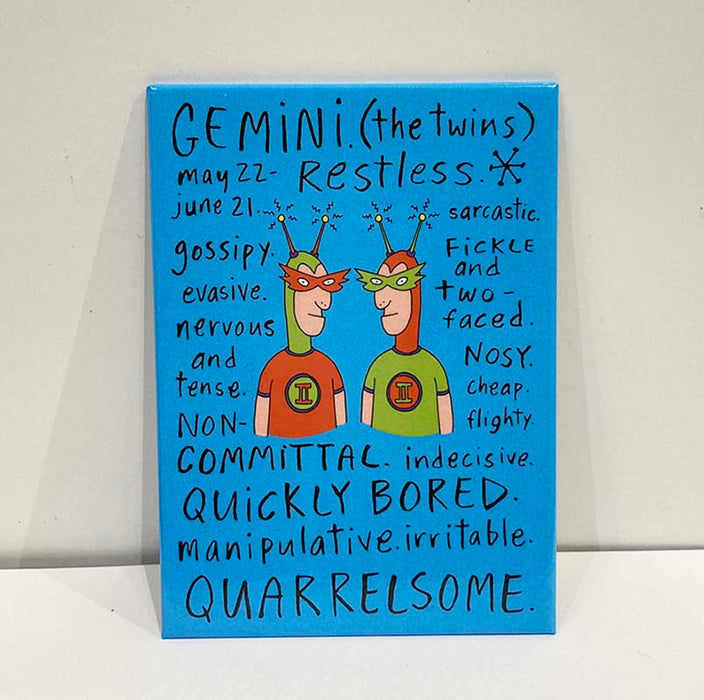 GEMiNi. (the twins)
may 22-
june 21.
Restless.
gossipy.
evasive.
nervous
and
tense.
NON-
COMMiTTAL. indecisive.
sarcastic.
FiCKLE
and
two-
faced.
NOSY.
cheap.
flighty.
II
II
QUiCKLY BORED.
manipulative. irritable.
QUARRELSOME.